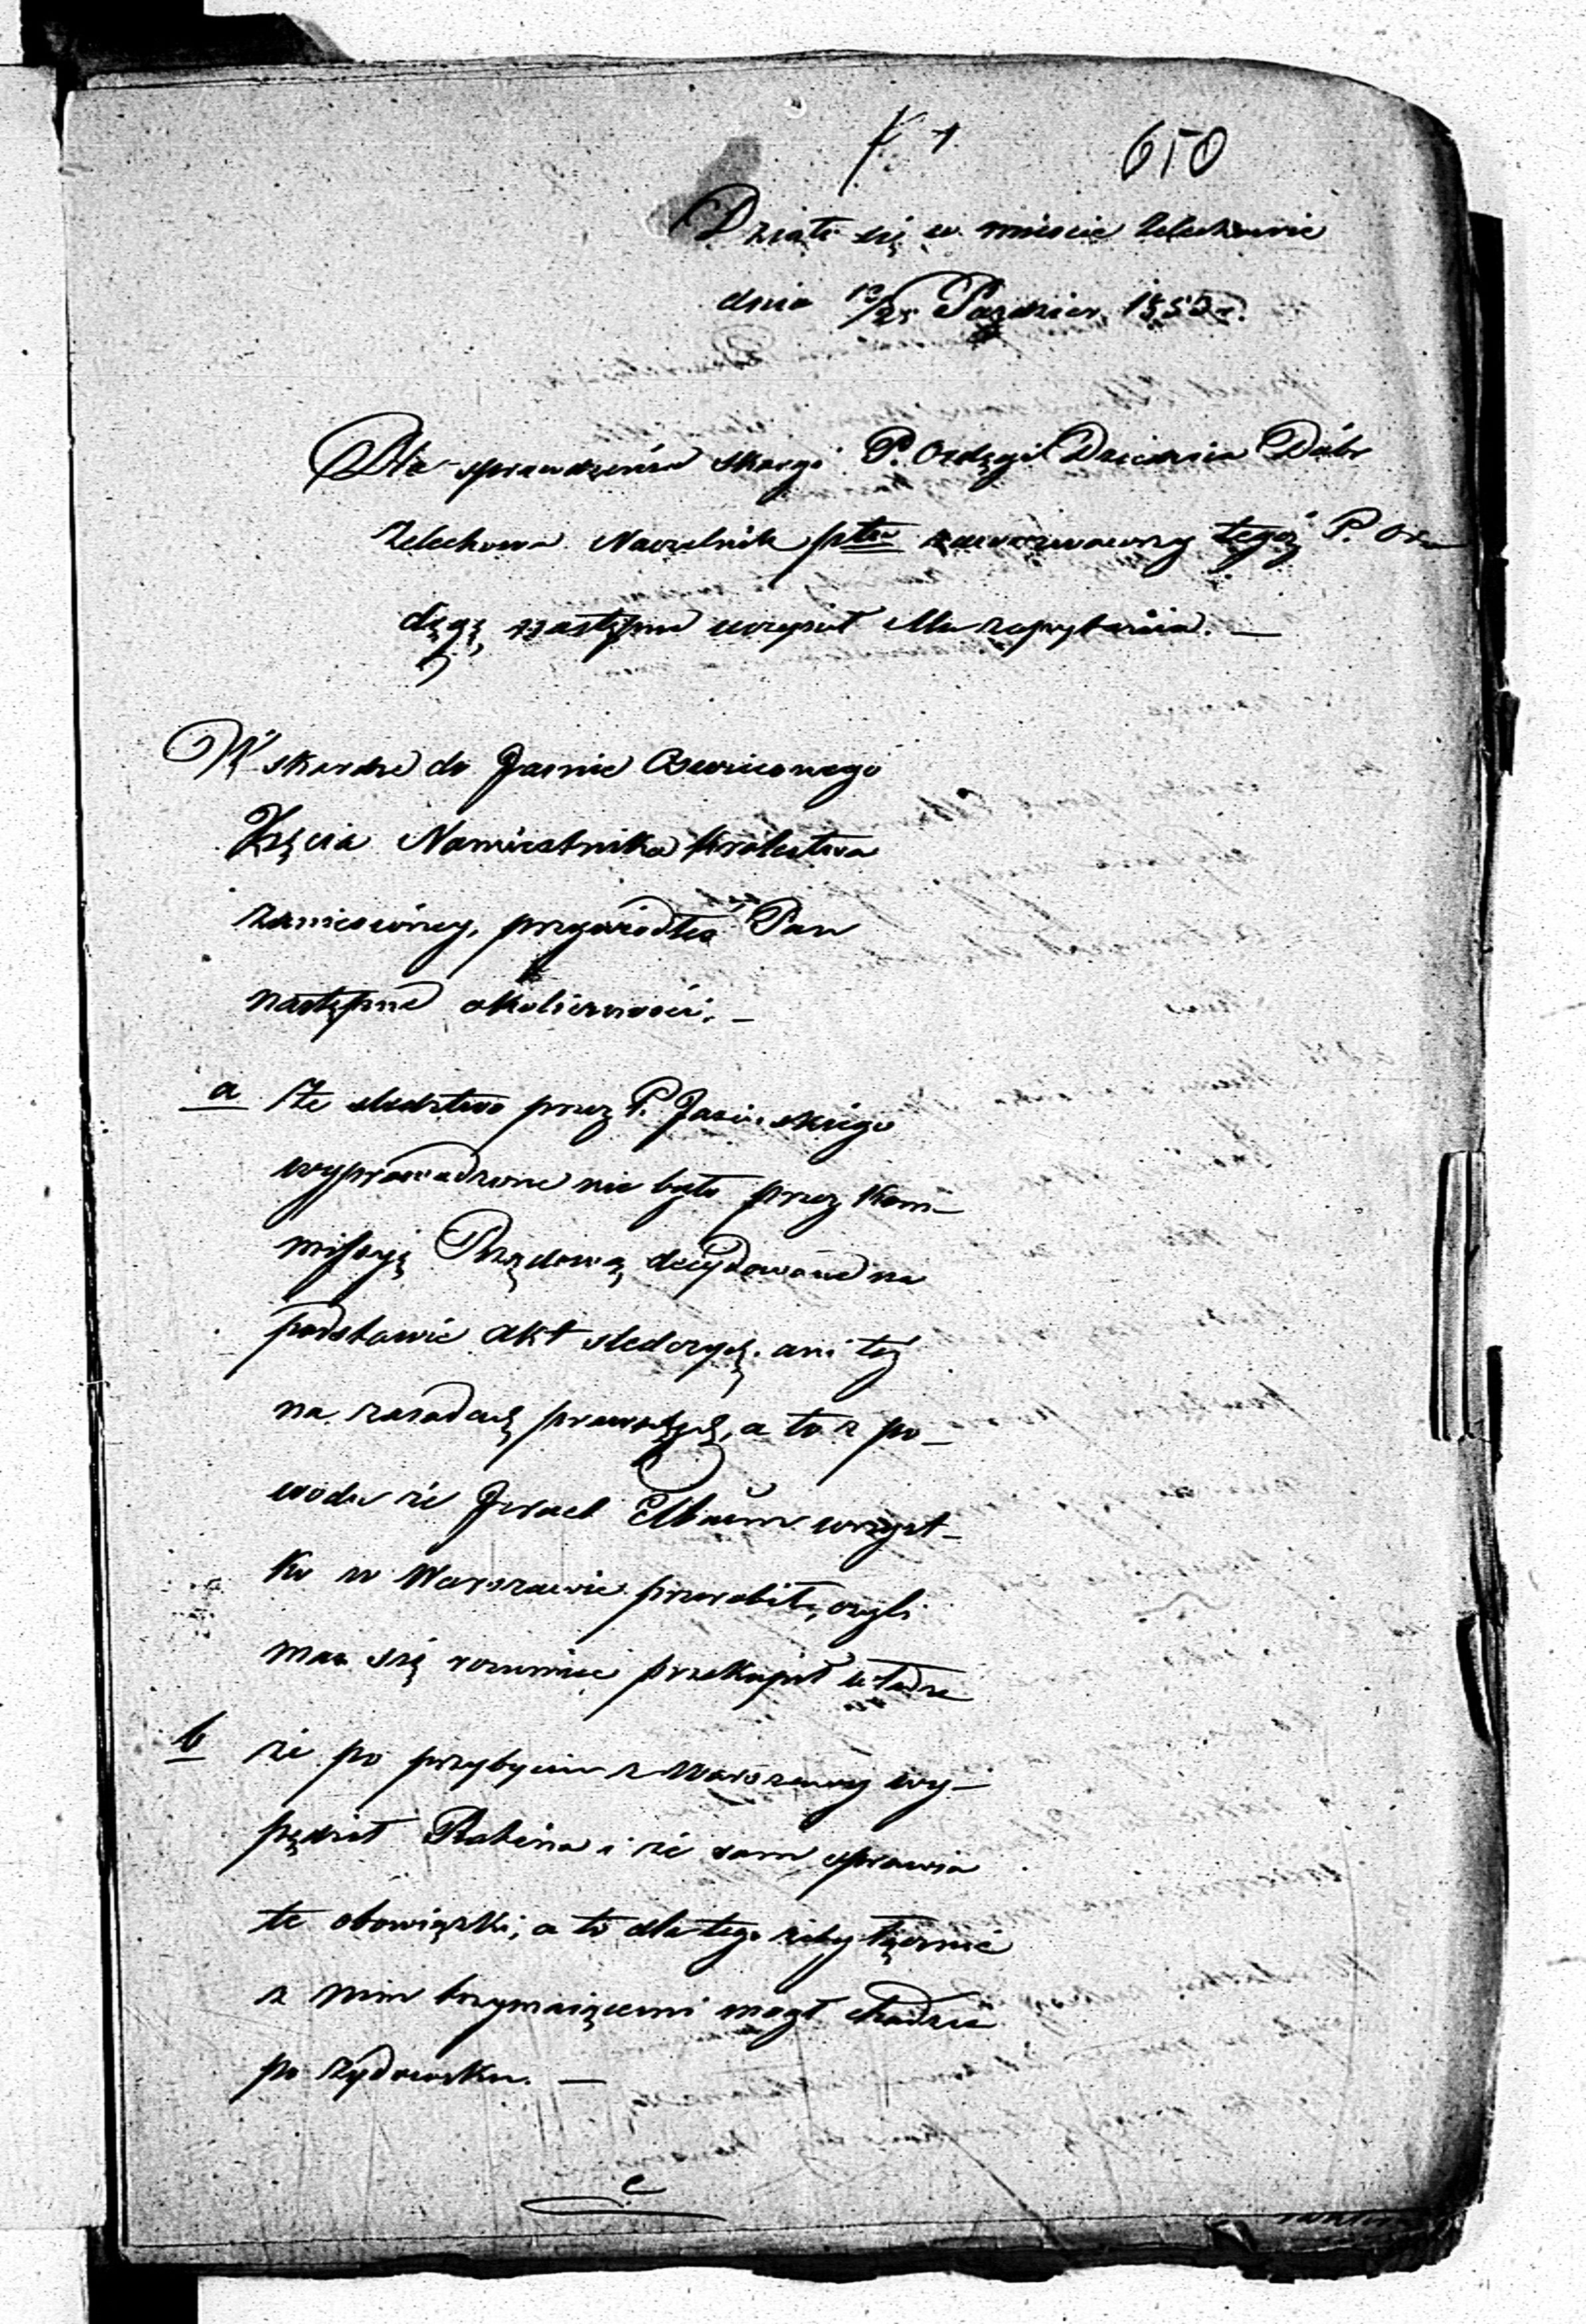 650
Działo się w mieście Żelechowie
dnia 13/25 Paździer. 1855 r.
Dla sprawdzenia skargi P. Ordęgi Dziedzica Dóbr
Żelechowa Naczelnik ptu zawezwawszy tegoż P. Or-
dęgę, następne uczynił Mu zapytania. —
W skardze do Jaśnie Oświeconego
Xięcia Namiestnika Królestwa
zaniesionej, przywiodłeś Pan
następne okoliczności. —
a Że śledztwo przez P. Jasińskiego
wyprowadzone nie było przez Kom-
missyję Rządową decydowane na
podstawie akt śledczych, ani też
na zasadach prawnych, a to z po-
wodu że Izrael Elbaum wszyst-
ko w Warszawie przerobił, czyli
ma się rozumieć przekupił władze
b że po przybyciu z Warszawy wy-
pędził Rabina i że sam sprawia
te obowiązki, a to dla tego żeby łącznie
z nim trzymającemi mógł chodzić
po żydowsku. —
c